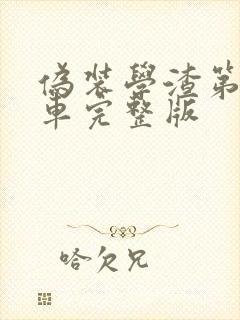 偽裝學渣第
車完整版
哈欠兄